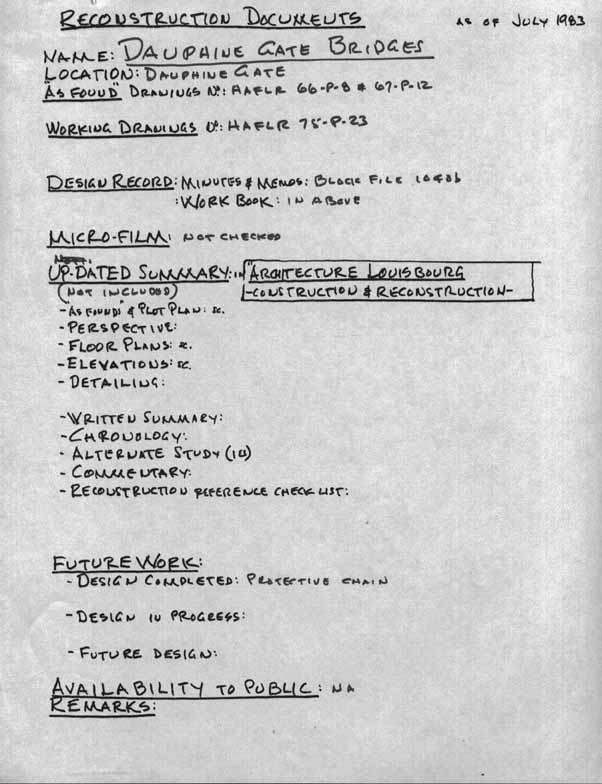 RECONSTRUCTION DOCUMENTS AS OF JULY 1983
NAME: DAUPHINE GATE BRIDGES
LOCATION: DAUPHINE GATE
"AS FOUND" DRAWINGS No: HAFLR 66-P-8 & 67-P-12
WORKING DRAWINGS No: HAFLR 75-P-23
DESIGN RECORD: MINUTES & MEMOS: BLOCK FILE
: WORK BOOK: IN ABOVE
MICRO-FILM: NOT CHECKED
UP-DATED SUMMARY: in "ARCHITECTURE LOUISBOURG
(NOT INCLUDED) -CONSTRUCTION & RECONSTRUCTION-
- "AS FOUND" & PLOT PLAN: &c.
- PERSPECTIVE:
- FLOOR PLANS: &c.
- ELEVATIONS: &c.
- DETAILING:
- WRITTEN SUMMARY:
- CHRONOLOGY:
- ALTERNATE STUDY
- COMMENTARY:
- RECONSTRUCTION REFERENCE CHECK LIST:
FUTURE WORK:
- DESIGN COMPLETED: PROTECTIVE CHAIN
- DESIGN IN PROGRESS:
- FUTURE DESIGN:
AVAILABILITY TO PUBLIC: NA
REMARKS: